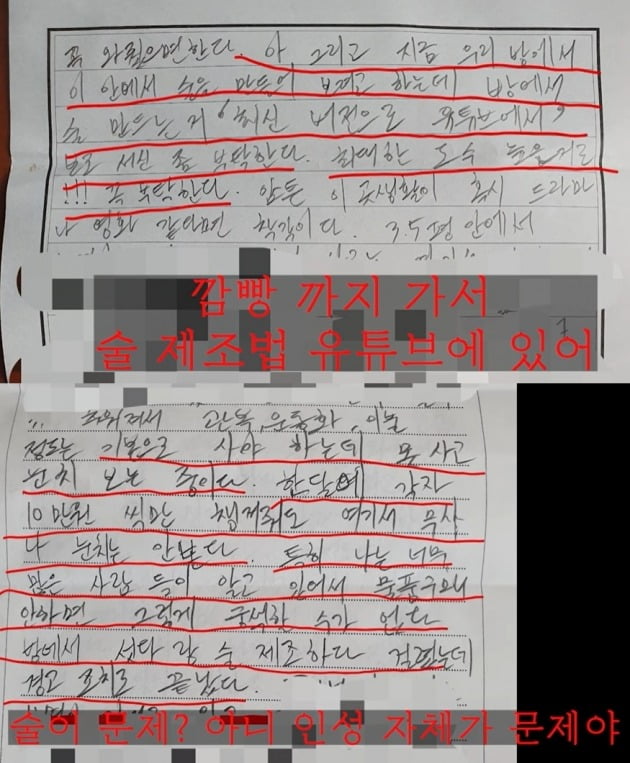 꼭 와줬으면한다. 아 그리고 지금 우리 방에서
이 안에서 술을 만들어 보려고 하는데 방에서
술 만드는거 "최신 버전으로 유튜브에서"
보고 서신 좀 부탁한다. 최대한 도수 높은거로
!!! 꼭 부탁한다. 암튼 이 곳생활이 혹시 드라마
나 영화 같다면 착각이다. 3.5평 안에서
깜빵 까지 가서
술 제조법 유튜브에 있어
관복, 운동화, 이불
정도는 기본으로 사야 하는데 못 사고
눈치 보는 중이다. 한달에 각자
10만원 씩만 챙겨줘도 여기서 무시
나 눈치는 안본다. 특히 나는 너무
많은 사람 들이 알고 있어서 물품구매
안하면 그렇게 궁색한 수가 없다
방에서 섯다 랑 술 제조하다 걸렸는데
경고 조치로 끝났다.
술이 문제? 아니 인성 자체가 문제야